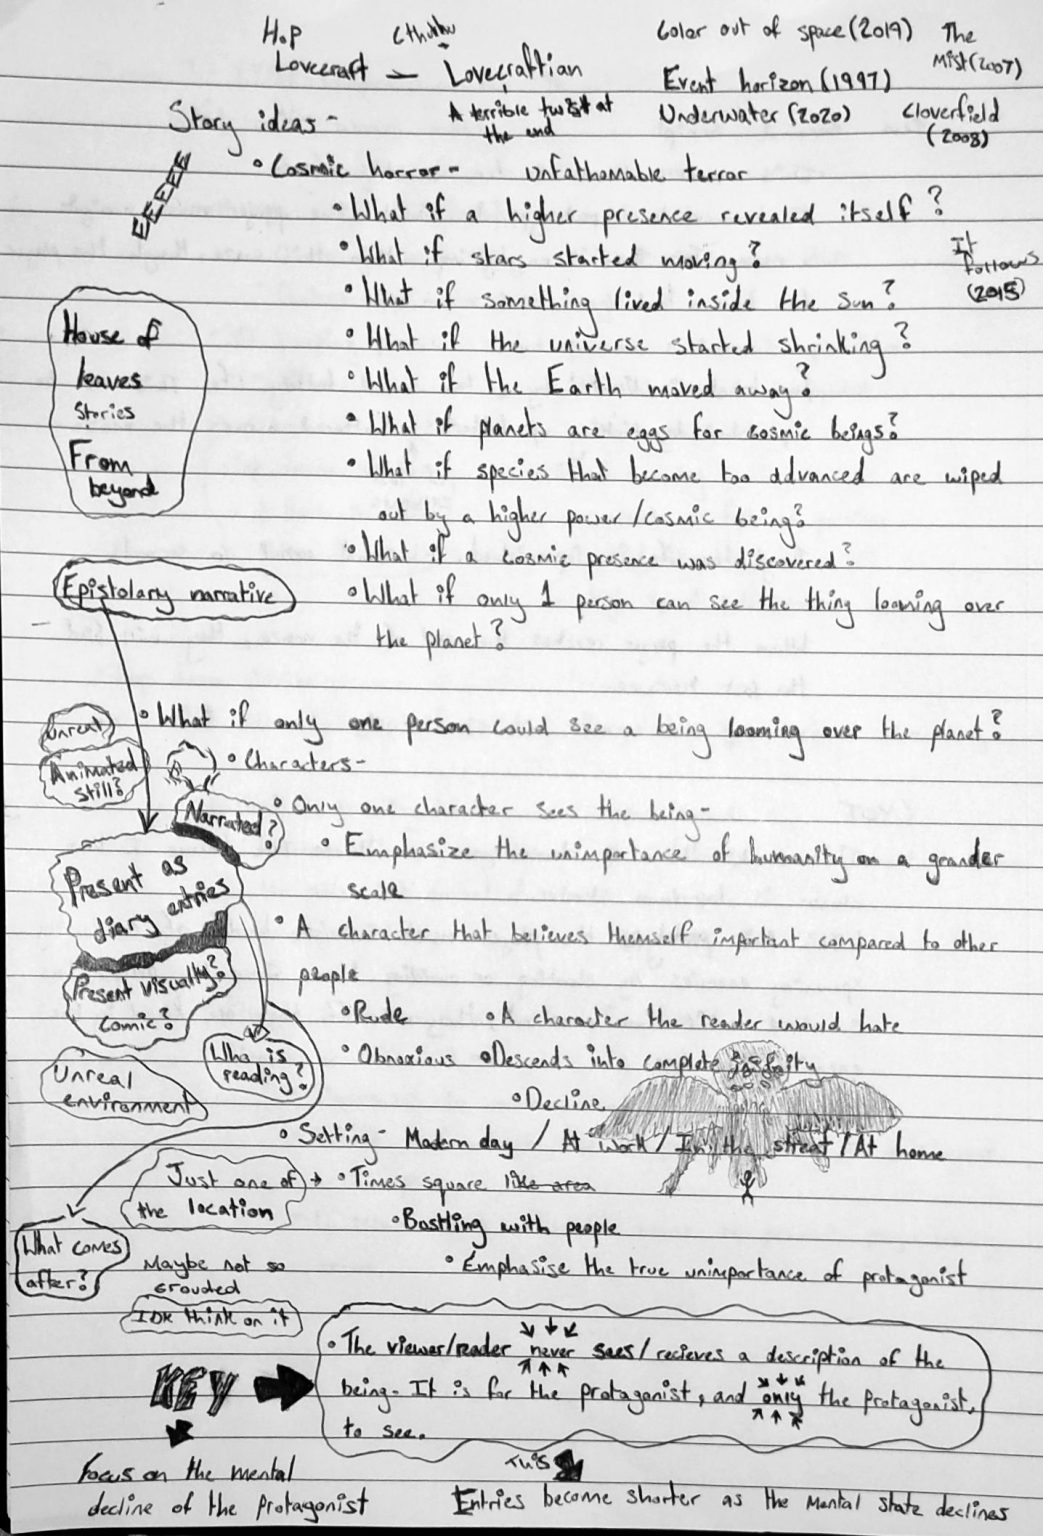 H.P
Lovecraft — Lovecraftian
Cthulhu
A terrible twist at
the end
Color out of space (2019)
Event horizon (1997)
Underwater (2020)
The
Mist (2007)
Cloverfield
(2008)
Story ideas -
EEEEE
• Cosmic horror - unfathomable terror
• What if a higher presence revealed itself?
• What if stars started moving?
• What if something lived inside the sun?
• What if the universe started shrinking?
• What if the Earth moved away?
• What if planets are eggs for cosmic beings?
• What if species that become too advanced are wiped
out by a higher power/cosmic being?
• What if a cosmic presence was discovered?
• What if only 1 person can see the thing looming over
the planet?
It
Follows
(2015)
House of
leaves
Stories
From
beyond
Epistolary narrative
• What if only one person could see a being looming over the planet?
Unreal
Animated
still?
• Characters-
Narrated?
• Only one character sees the being-
• Emphasize the unimportance of humanity on a grander
scale
Present as
diary entries
• A character that believes themself important compared to other
people
Present visually?
Comic?
• Rude • A character the reader would hate
• Obnoxious • Descends into complete insanity
• Decline
Who is
reading?
Unreal
environment
• Setting - Modern day / At work / In the street / At home
Just one of
the location
• Times square like area
• Bostling with people
• Emphasise the true unimportance of protagonist
What comes
after?
Maybe not so
crouded
IDK think on it
KEY
• The viewer/reader never sees/recieves a description of the
being - It is for the protagonist, and only the protagonist,
to see.
Focus on the mental
decline of the protagonist
This
Entries become shorter as the mental state declines